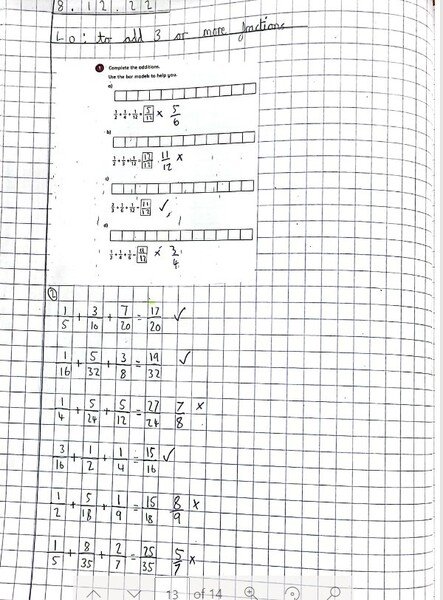 8.12.22
LO: to add 3 or more fractions
1 Complete the additions.
Use the bar models to help you.
a)
5/12 x 5/6
b)
1/12 = 11/12 x
c)
1/12 = 11/12 ✓
d)
x 3/4
②
1/5 + 3/10 + 7/20 = 17/20 ✓
1/16 + 5/32 + 3/8 = 19/32 ✓
1/4 + 5/24 + 5/12 = 27/24 7/8 x
3/16 + 1/2 + 1/4 = 15/16 ✓
1/2 + 5/18 + 1/9 = 15/18 8/9 x
1/5 + 8/35 + 2/7 = 25/35 5/7 x
13 of 14